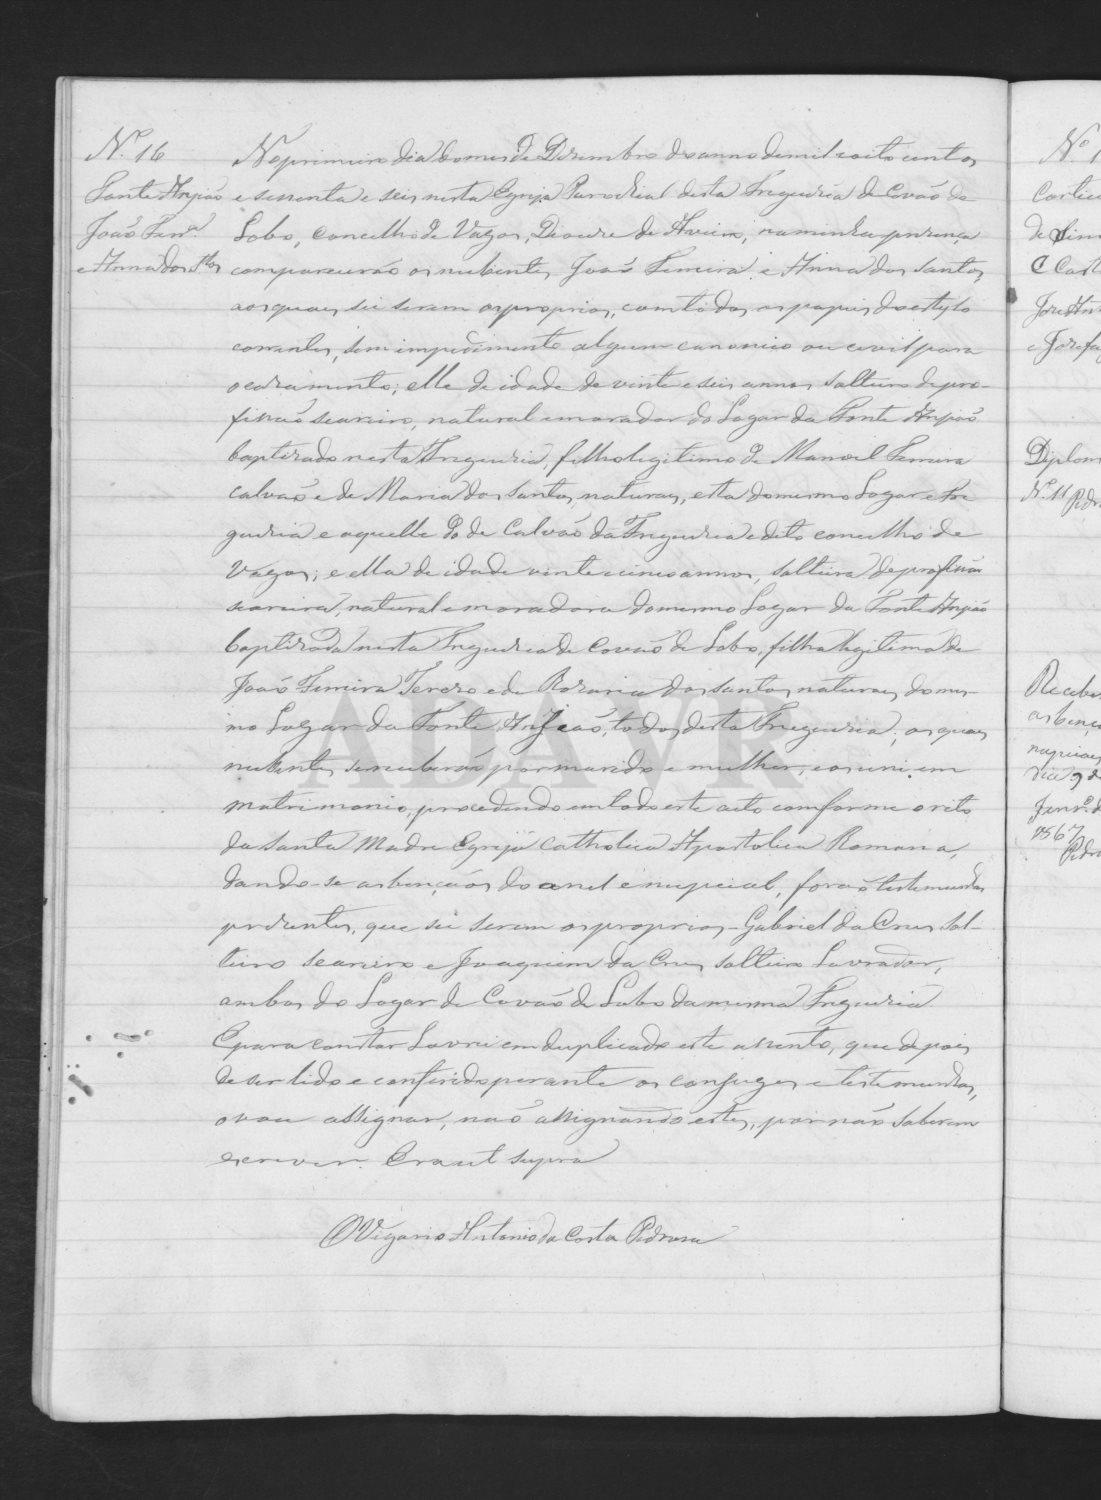 Nº 16
Fonte Anjiáo
João Ferrª
e Anna dos Stos
No primeiro dia do mes de Dezembro do anno de mil e oito centos
e sessenta e seis nesta Egreja Parochial desta Freguezia de Covão do
Lobo, concelho de Vagos, Diocese de Aveiro, na minha presença
comparecerão os nubentes João Ferreira e Anna dos Santos,
aos quaes sei serem os proprios, com todos os papeis do estylo
correntes, sem impedimento algum canonico ou civil para
o cazamento; elle de idade de vinte e seis annos solteiro de pro-
fissão seareiro, natural e morador do Logar da Fonte Anjiáo
baptizado nesta Freguezia, filho legitimo de Manoel Ferreira
Calvão e de Maria dos Santos, naturaes, esta do mesmo Logar e Fre
guezia e aquelle do de Calvão da Freguezia e dito concelho de
Vagos; e ella de idade vinte e cinco annos, solteira de profissão
seareira, natural e moradora do mesmo Logar da Fonte Anjiáo
baptizada nesta Freguezia de Covão do Lobo, filha legitima de
João Ferreira e de Rozaria dos Santos, naturaes do mes-
mo Logar da Fonte Anjeáo, todos desta Freguezia; os quaes
nubentes se receberão por marido e mulher, e os uni em
matrimonio, procedendo em todo este acto comforme o rito
da Santa Madre Egreja Catholica Apostolica Romana,
dando-se as bençãos do anel e nupcial, forão testemunhas
prezentes, que sei serem os proprios - Gabriel da Cruz sol-
teiro seareiro e Joaquim da Cruz solteiro Lavrador,
ambos do Logar de Covão do Lobo da mesma Freguezia
E para constar Lavrei em duplicado este assento, que depois
de ser lido e conferido perante os conjuges e testemunhas,
o vou assignar, não assignando estes, por não saberem
escrever. Era ut supra
O Vigario Antonio da Costa Pedroza
ADAVR
Nº 1
de
e Cast
José An
e Jozefa
Diplom
Nº 11
Pedro
Receber
as benç
nupciaes
dia 9 d
Janrº d
1867
Pedro